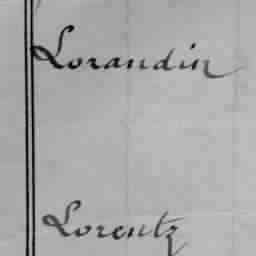 Lorandin
Lorentz